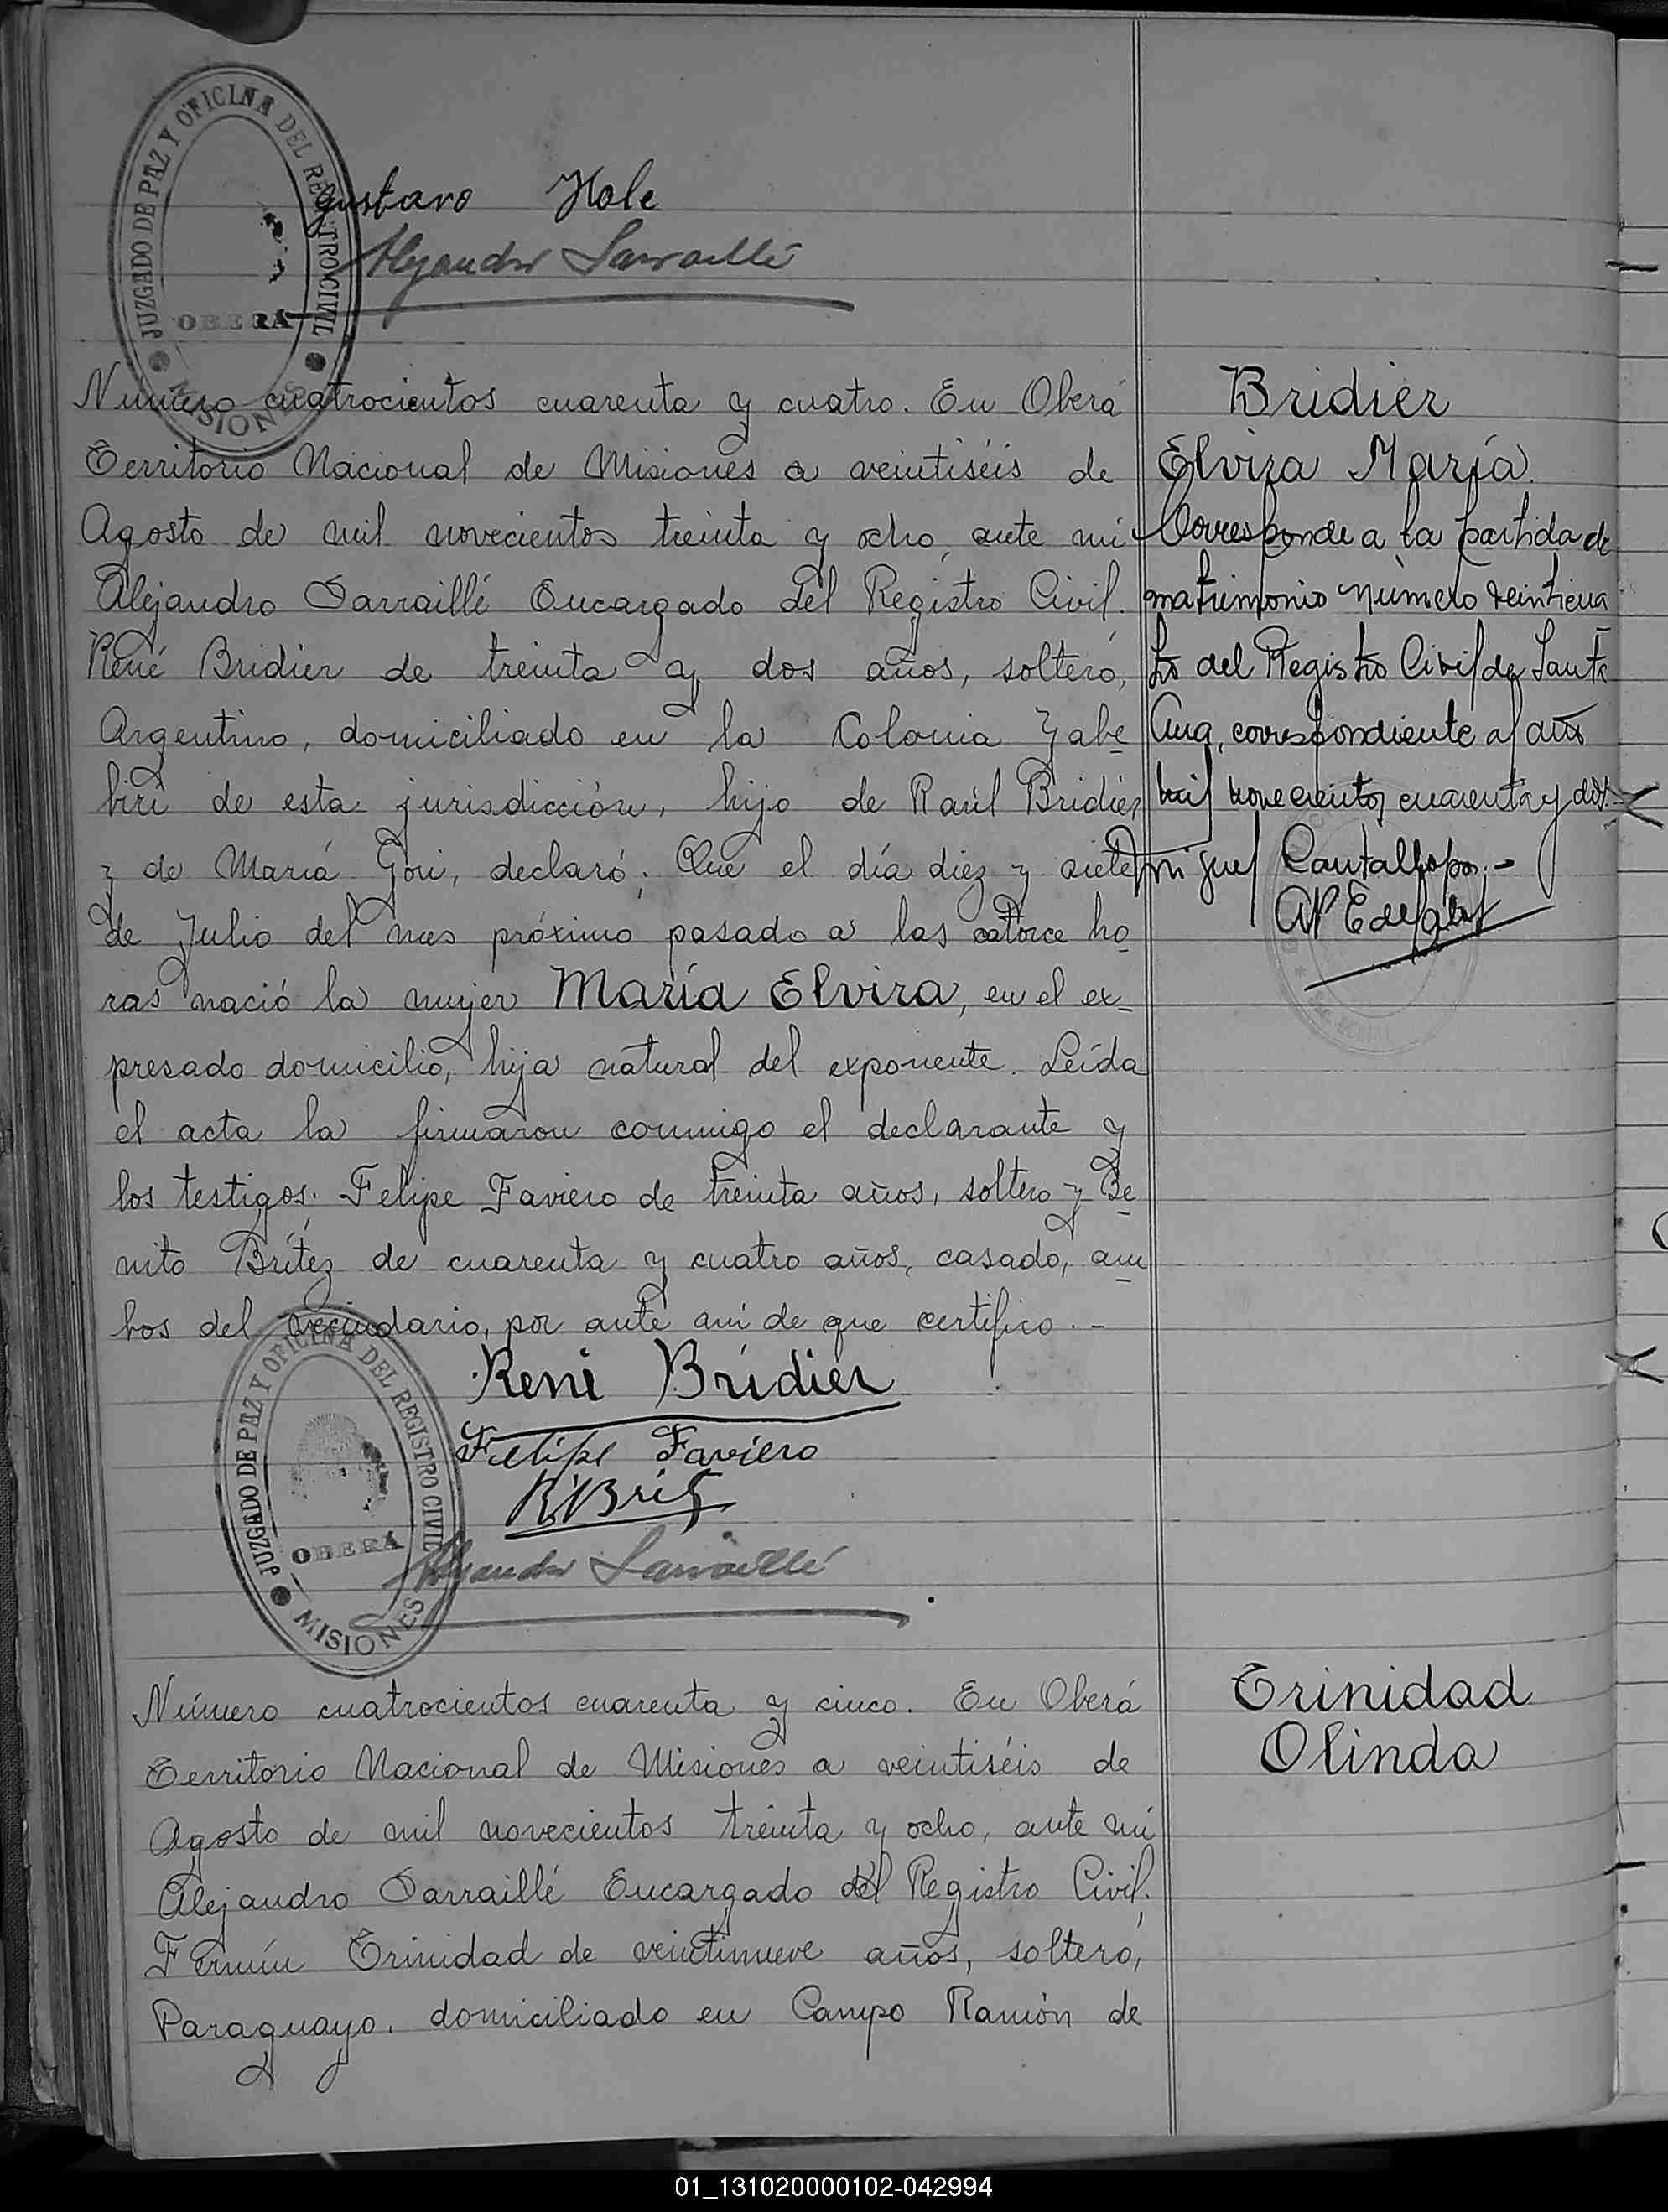 JUZGADO DE PAZ Y OFICINA DEL REGISTRO CIVIL
OBERÁ
MISIONES
Gustavo Hole
Alejandro Sarraillé
Número cuatrocientos cuarenta y cuatro. En Oberá
Territorio Nacional de Misiones a veintiséis de
Agosto de mil novecientos treinta y ocho, ante mi
Alejandro Sarraillé Encargado del Registro Civil.
René Bridier de treinta y dos años, soltero,
Argentino, domiciliado en la Colonia Yabe
birí de esta jurisdicción, hijo de Raúl Bridier
y de María Gori, declaró: Que el día diez y siete
de Julio del mes próximo pasado a las catorce ho
ras nació la mujer María Elvira, en el ex
presado domicilio, hija natural del exponente. Leída
el acta la firmaron conmigo el declarante y
los testigos: Felipe Faviero de treinta años, soltero y Be
nito Brítez de cuarenta y cuatro años, casado, am
bos del vecindario, por ante mí de que certifico.-
René Bridier
Felipe Faviero
Alejandro Sarraillé
JUZGADO DE PAZ Y OFICINA DEL REGISTRO CIVIL
OBERÁ
MISIONES
Bridier
Elvira María.
Corresponde a la partida de
matrimonio número veinticua
tro del Registro Civil de Santa
Ana, correspondiente al año
mil novecientos cuarenta y dos
Miguel
Número cuatrocientos cuarenta y cinco. En Oberá
Territorio Nacional de Misiones a veintiséis de
Agosto de mil novecientos treinta y ocho, ante mi
Alejandro Sarraillé Encargado del Registro Civil.
Fermín Trinidad de veintinueve años, soltero,
Paraguayo, domiciliado en Campo Ramón de
Trinidad
Olinda
01_131020000102-042994